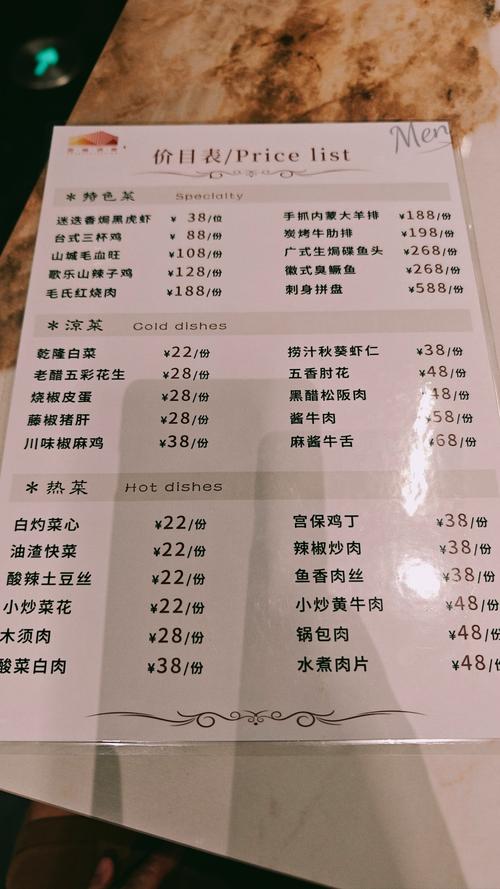 Men
价目表/Price list
*特色菜 Specialty
迷迭香焗黑虎虾 ¥ 38/位
手抓内蒙大羊排 ¥188/份
台式三杯鸡 ¥ 88/份
炭烤牛肋排 ¥198/份
山城毛血旺 ¥108/份
广式生焗碟鱼头 ¥268/份
歌乐山辣子鸡 ¥128/份
徽式臭鳜鱼 ¥268/份
毛氏红烧肉 ¥188/份
刺身拼盘 ¥588/份
*凉菜 Cold dishes
乾隆白菜 ¥22/份
捞汁秋葵虾仁 ¥38/份
老醋五彩花生 ¥28/份
五香肘花 ¥48/份
烧椒皮蛋 ¥28/份
黑醋松阪肉 ¥48/份
藤椒猪肝 ¥28/份
酱牛肉 ¥58/份
川味椒麻鸡 ¥38/份
麻酱牛舌 ¥68/份
*热菜 Hot dishes
白灼菜心 ¥22/份
宫保鸡丁 ¥38/份
油渣快菜 ¥22/份
辣椒炒肉 ¥38/份
酸辣土豆丝 ¥22/份
鱼香肉丝 ¥38/份
小炒菜花 ¥22/份
小炒黄牛肉 ¥48/份
木须肉 ¥28/份
锅包肉 ¥48/份
酸菜白肉 ¥38/份
水煮肉片 ¥48/份